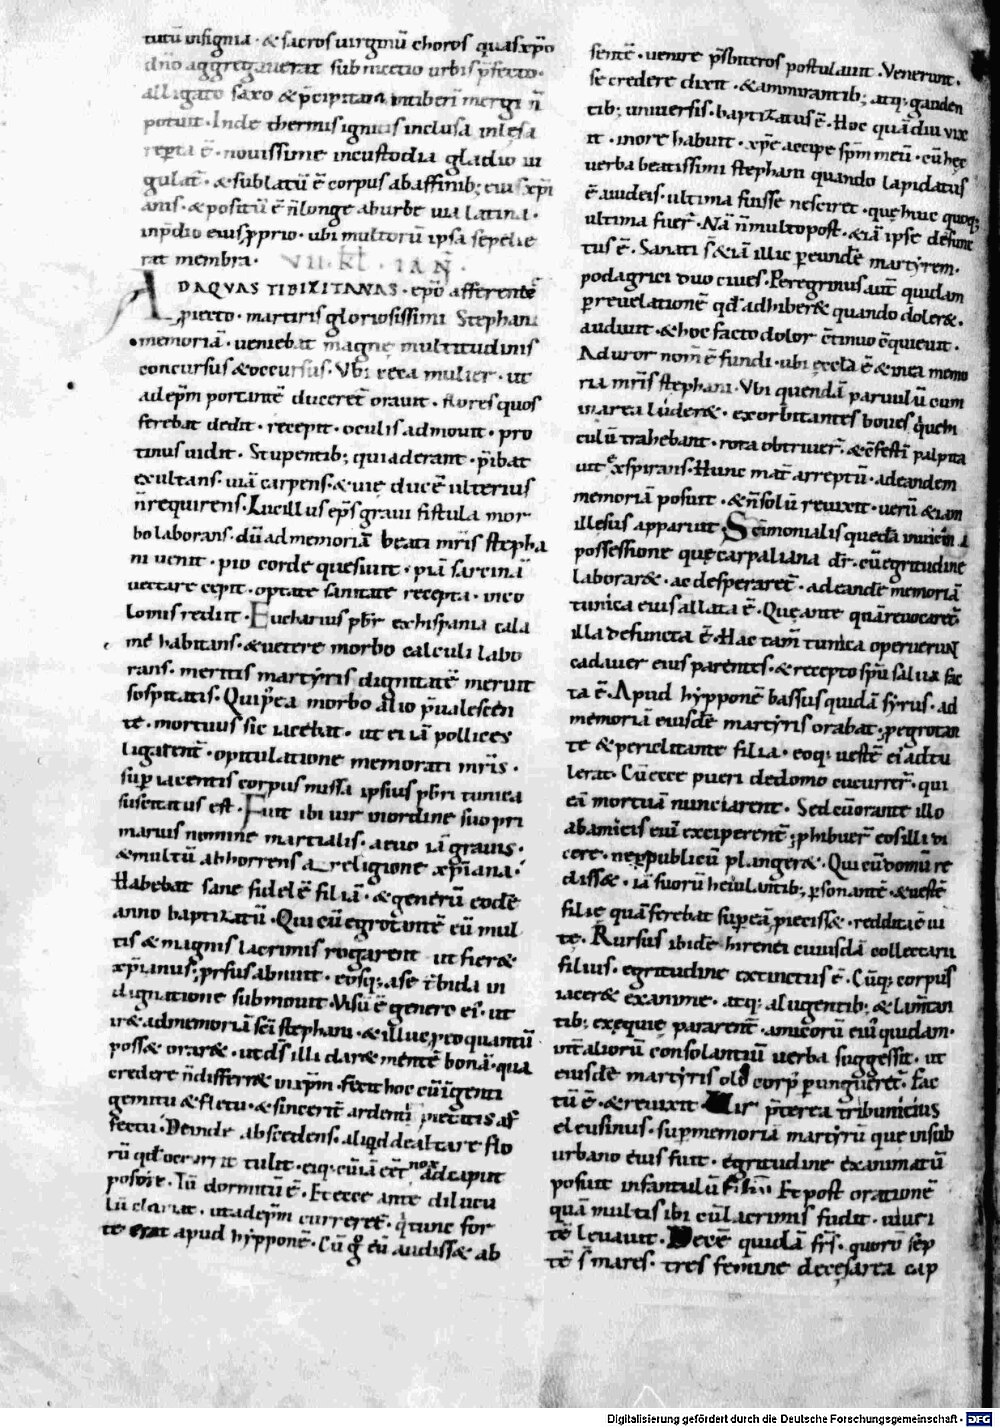 tutū insignia · & sacros uirginū choros quas xp̄o
dn̄o aggregauerat sub mecio urbis p̄fecto ·
alligato saxo & p̄cipitata in tiberī mergi n̄
potuit · Inde thermis igniuis inclusa inlęsa
rep̄ta ē · nouissime in custodia gladio iu
gulat̄ · & sublatū ē corpus ab affinib; eius xp̄i
anis · & positū ē n̄ longe ab urbe uia latina ·
in p̄dio eius p̄prio · ubi multorū ipsa sepelie
rat membra · VII · KL̄ · IAN̄ ·
AD AQVAS TIBILITANAS · ep̄o afferente
p̄iecto · martiris gloriosissimi Stephani
memoriā · ueniebat magnę multitudinis
concursus & occursus · Vbi ceca mulier · ut
ad ep̄m portantē duceret̄ orauit · flores quos
ferebat dedit · recepit · oculis admouit · pro
tinus uidit · Stupentib; qui aderant · p̄ibat
exultans · uiā carpens · & uię ducē ulterius
n̄ requirens · Lucillus ep̄s graui fistula mor
bo laborans · dū ad memoriā beati mr̄is stepha
ni uenit · pio corde quesiuit · piā sarcinā
uectare cepit · optate sanitate recepta · inco
lomis rediit · Eucharius pb̄r ex hispania cala
mę habitans · & uetere morbo calculi labo
rans · meritis martyris dignitatē meruit
sospitatis · Qui p̄ea morbo alio p̄ualescen
te · mortuus sic iacebat · ut ei iā pollices
ligarent̄ · opitulatione memorati mr̄is ·
sup̄ iacentis corpus missa ipsius pb̄ri tunica
suscitatus est · Fuit ibi uir in ordine suo pri
marius nomine martialis · aeuo iā grauis ·
& multū abhorrens a religione xp̄iana ·
Habebat sane fidelē filiā · & generū eodē
anno baptizatū · Qui cū egrotantē eū mul
tis & magnis lacrimis rogarent ut fier&
xp̄ianus; p̄rsus abnuit · eosq; a se t̄bida in
dignatione submouit · Visū ē genero ei · ut
ir& ad memoriā sc̄i stephani · & illic p̄ eo quantū
poss& orar& · ut ds̄ illi dar& mentē bonā · qua
credere n̄ differr& in xp̄m · Fecit hoc cū īgenti
gemitu & fletu · & sincerit̄ ardenti pietatis af
fectu · Deinde abscedens · aliqd de altare flo
rū qd occurrit tulit · eiq; cū iā eēt nox ad caput
posuit · Tū dormitū ē · Et ecce ante dilucu
lū clamat · ut ad ep̄m curreret̄ · q̄ tunc for
te erat apud hipponē · Cū g̊ eū audiss& ab
sentē · uenire p̄sbiteros postulauit · Venerunt ·
se credere dixit · & ammirantib; atq; gauden
tib; uniuersis · baptizatus ē · Hoc quādiu uix
it · in ore habuit · xp̄e accipe sp̄m meū · cū hęc
uerba beatissimi stephani quando lapidatus
ē a iudeis · ultima fuisse nesciret · quę huic quoq;
ultima fuer̄ · Nā n̄ multo post · & iā ipse defunc
tus ē · Sanati s̄ & iā illic p̄ eundē martyrem ·
podagrici duo ciues · Peregrinus aut̄ quidam
p̄ reuelationē qd adhiber& quando doler& ·
audiuit · & hoc facto dolor c̄tinuo c̄quieuit ·
Aduror nom̄ ē fundi · ubi ęcclā ē & in ea memo
ria mr̄is stephani · Vbi quendā paruulū cum
in area luder& · exorbitantes boues q̄ uehi
culū trahebant · rota obtriuer̄ · & c̄festī palpita
uit exspirans · Hunc mat̄ arreptū · ad eandem
memoriā posuit · & n̄ solū reuixit · uerū & iam
illesus apparuit · Sc̄imonialis quedā uicina
possessione quę carpaliana dr̄ · cū egritudine
laborar& · ac desperaret̄ · ad eandē memoriā
tunica eius allata ē · Que ante quā reuocaret̄
illa defuncta ē · Hac tam̄ tunica operuerunt
cadauer eius parentes · & recepto sp̄u salua fac
ta ē · Apud hypponē bassus quidā syrus · ad
memoriā eiusdē martyris orabat · p̄ egrotan
te & periclitante filia · eoq; uestē ei' adtu
lerat · Cū ecce pueri de domo cucurrer̄ · qui
eā mortuā nunciarent · Sed cū orante illo
ab amicis eiu' exciperent̄; p̄hibuer̄ eos illi di
cere · ne p̄ publicū planger& · Qui cū domū re
diss& · iā suorū heiulantib; p̄sonantē · & uestē
filię quā ferebat sup̄ eā p̄ieciss& · reddita ē ui
te · Rursus ibidē hirenei cuiusdā collectarii
filius · egritudine extinctus ē · Cūq; corpus
iacer& exanime · atq; a lugentib; & lam̄tan
tib; exequię pararent̄ · amicorū eiu' quidam ·
int̄ aliorū consolantiū uerba suggessit · ut
eiusdē martyris oleo corp' p̄ungueret̄ · Fac
tū ē · & reuixit · Vir p̄terea tribunicius
eleusinus · sup̄ memoria martyrū que in sub
urbano eius fuit · egritudine exanimatū
posuit infantulū filiū · Et post orationē
quā multis ibi cū lacrimis fudit · uiuen
tē leuauit · Decē quidā frs̄ · quorū sep
tē s̄ mares · tres femine de cęsarea cap